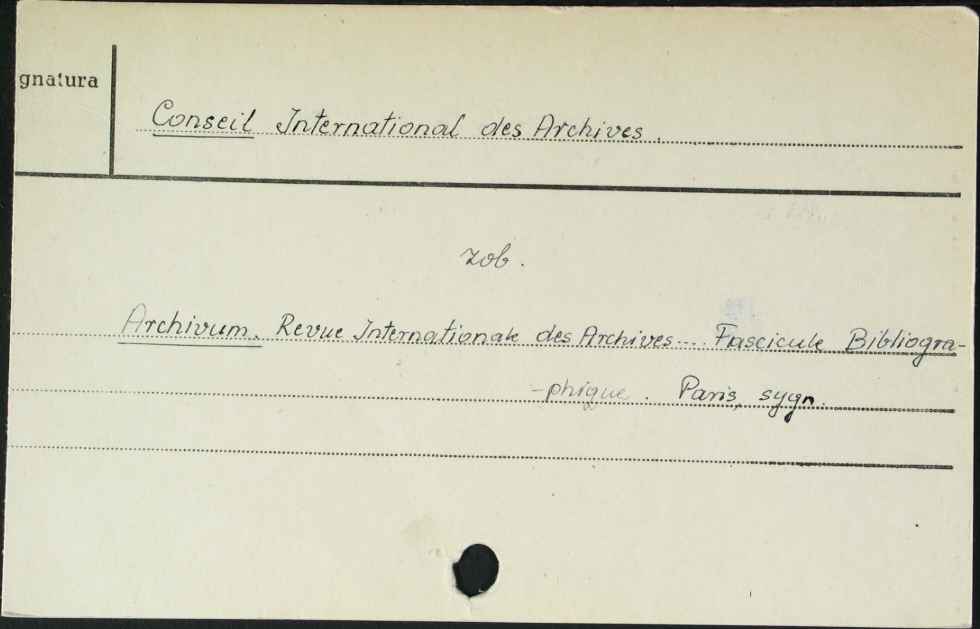 gnatura
Conseil International des Archives.
zob.
Archivum. Revue Internationale des Archives... Fascicule Bibliogra-
-phique. Paris, sygn.